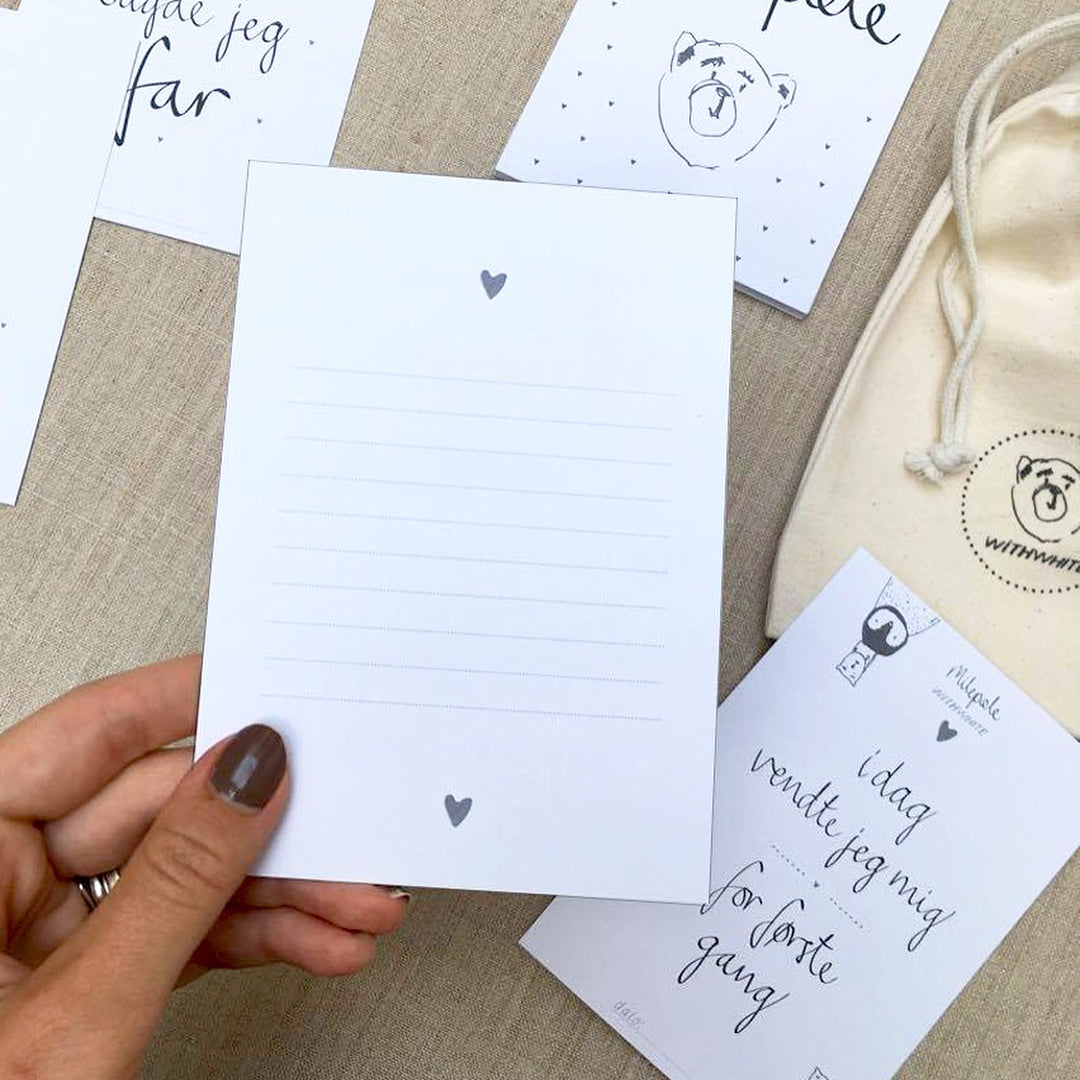 sagde jeg
far
pæle
WITHWHITE
Milepæle
WITHWHITE
i dag
vendte jeg mig
for første
gang
dato: